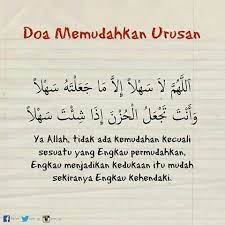 Doa Memudahkan Urusan
اَللّٰهُمَّ لَا سَهْلاً إِلاَّ مَا جَعَلْتَهُ سَهْلاً
وَأَنْتَ تَجْعَلُ الْحُزْنَ إِذَا شِئْتَ سَهْلاً
Ya Allah, tidak ada kemudahan kecuali
sesuatu yang Engkau permudahkan,
Engkau menjadikan kedukaan itu mudah
sekiranya Engkau kehendaki.